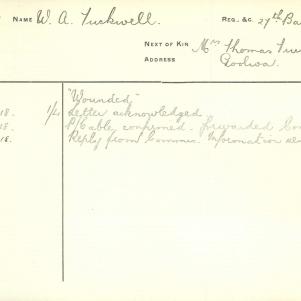 NAME W. A. Tuckwell. REG. &C. 27th Ba
NEXT OF KIN Mrs Thomas
ADDRESS Goolwa.
"Wounded"
18. 1/4 Letter acknowledged.
18. P/Cable, confirmed. forwarded
18. Reply from Commns. Information